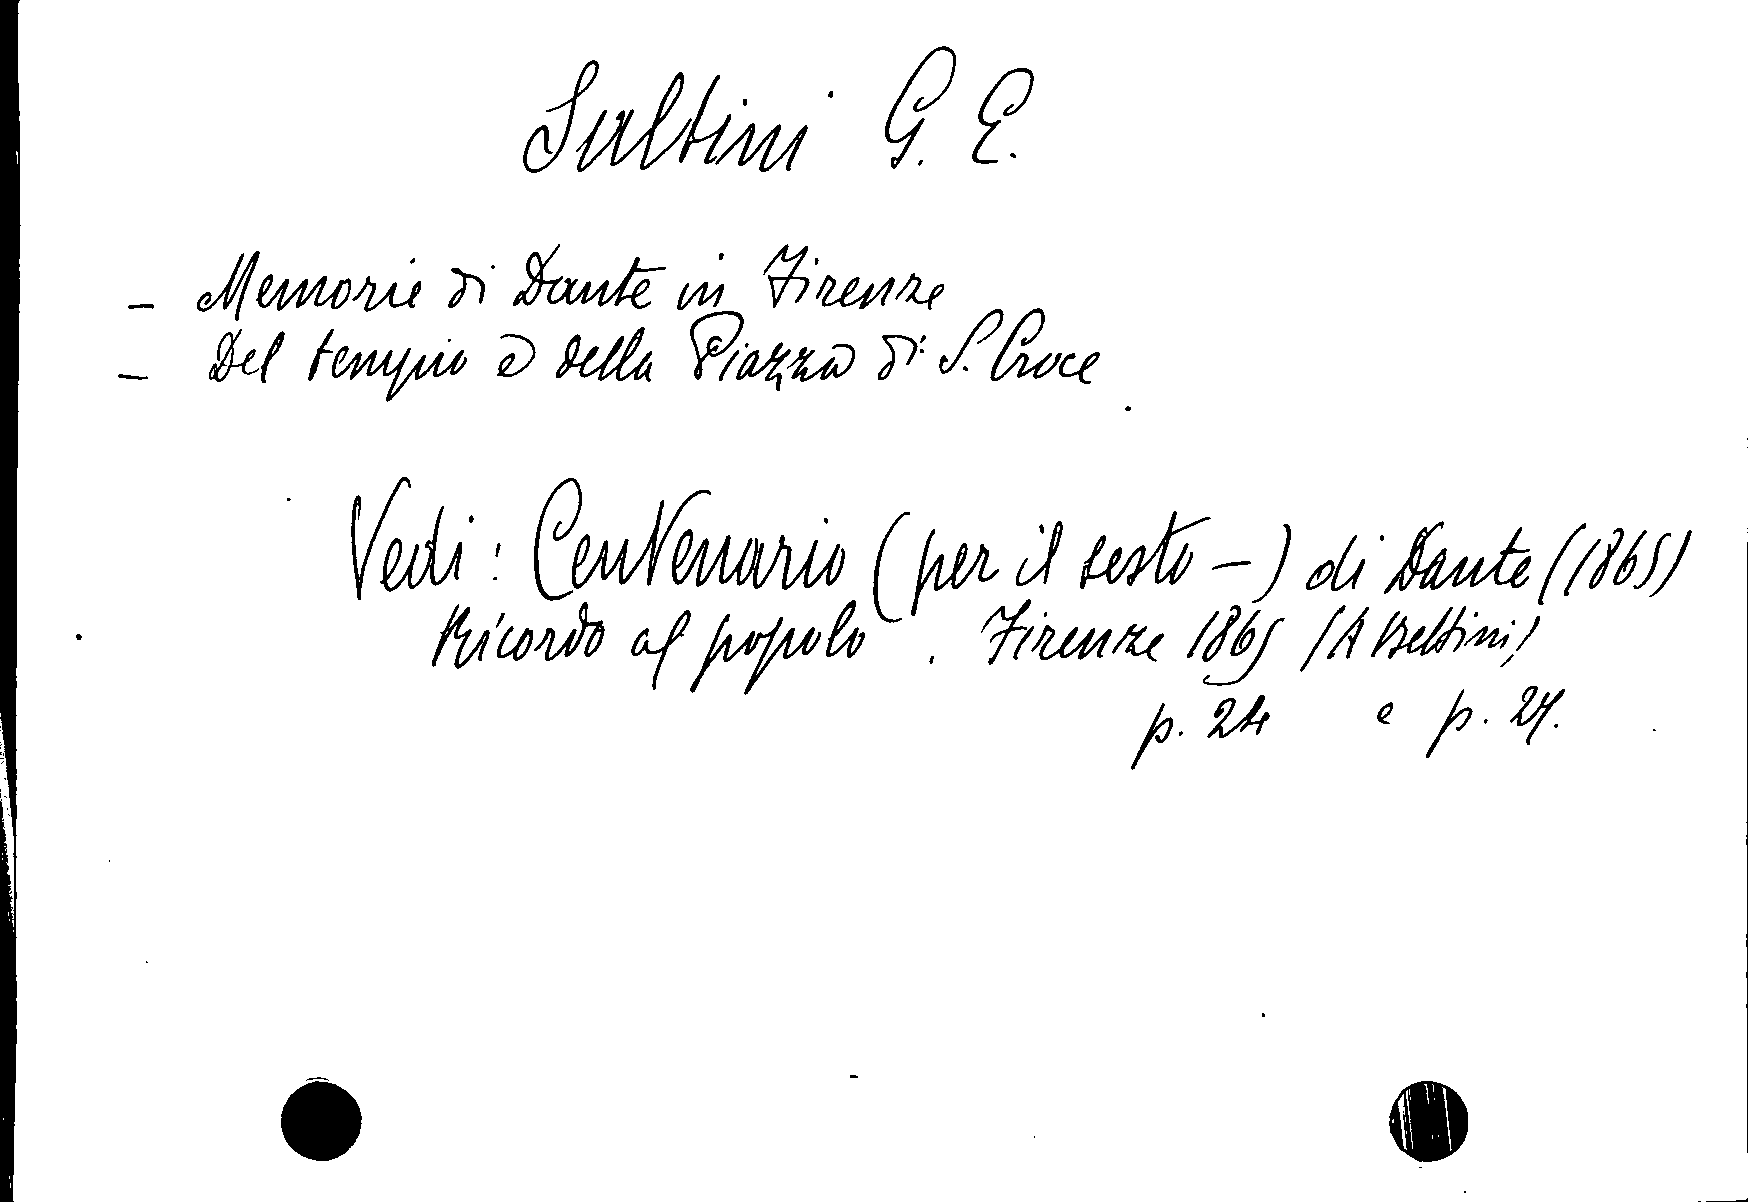 Saltini G. E.
– Memorie di Dante in Firenze
– Del tempio e della Piazza di S. Croce
Vedi: Centenario (per il sesto –) di Dante (1865)
Ricordo al popolo. Firenze 1865 (A Bettini)
p. 24 e p. 27.